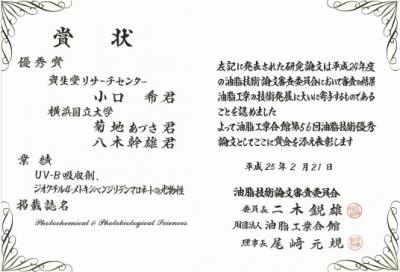 賞状
優秀賞
資生堂リサーチセンター
小口 希君
横浜国立大学
菊地あづさ君
八木幹雄君
業績
UV-B吸収剤、
ジオクチル4-メトキシベンジリデンマロネートの光物性
掲載誌名
Photochemical & Photobiological Sciences
左記に発表された研究論文は平成24年度
の油脂技術論文審査委員会において審査の結果
油脂工業の技術発展に大いに寄与するものである
ことを認めました
よって油脂工業会館第56回油脂技術優秀
論文としてここに賞金を添え表彰します
平成25年2月21日
油脂技術論文審査委員会
委員長 二木鋭雄
財団法人 油脂工業会館
理事長 尾﨑元規